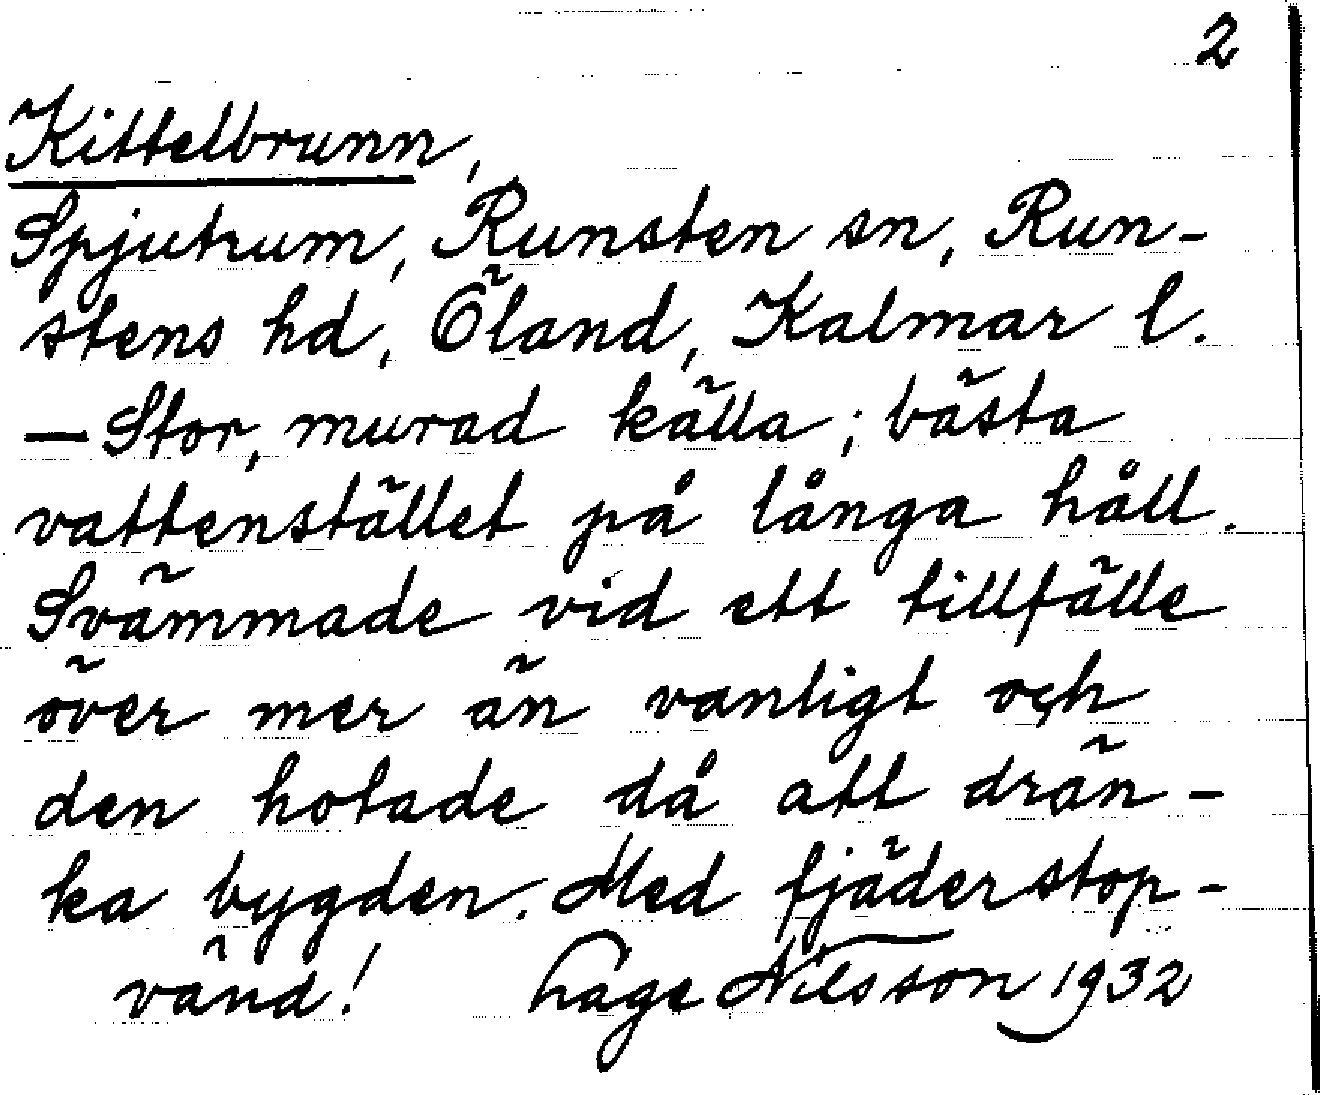 2
Kittelbrunn,
Spjutrum, Runsten sn, Run-
stens hd, Öland, Kalmar l.
— Stor, murad källa; bästa
vattenstället på långa håll.
Svämmade vid ett tillfälle
över mer än vanligt och
den hotade då att drän-
ka bygden. Med fjäderstop-
vänd! hage Nilsson 1932